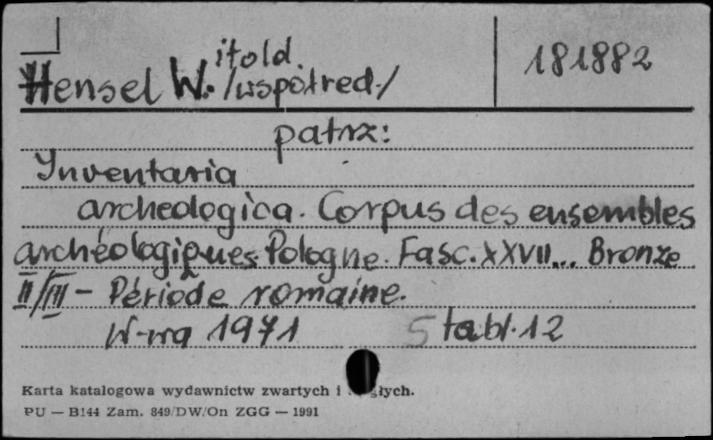 Hensel Witold. /współred/ 181882
patrz:
Inventaria
archeologica. Corpus des ensembles
archéologiques. Pologne. Fasc. XXVII... Bronze
II/III - Période romaine.
W-wa 1971 5 tabl. 12
Karta katalogowa wydawnictw zwartych i
PU — B144 Zam. 849/DW/On ZGG — 1991